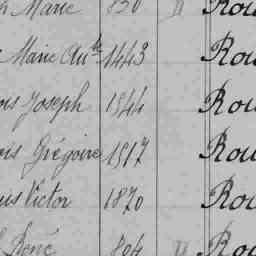 Marie 830 Rou
Marie Aute 1443 Rou
Joseph 1844 Rou
Grégoire 1817 Rou
Victor 1870 Rou
René 804 Rou